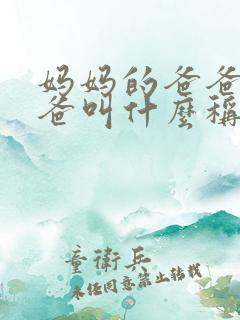 妈妈的爸爸
爸叫什麼稱
童衛兵
未经同意禁止转载